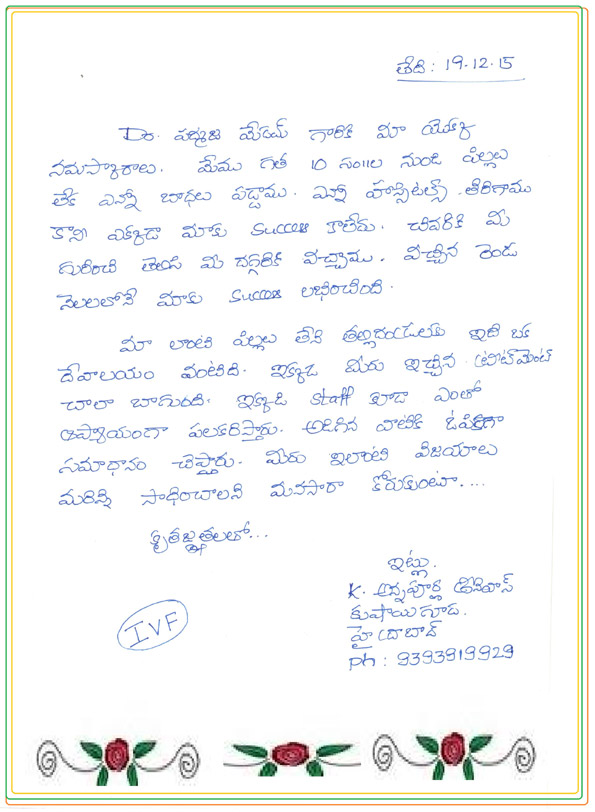 తేది : 19.12.15
Dr. పద్మజ మేడమ్ గారికి మా యొక్క
నమస్కారాలు. మేము గత 10 సం॥ల నుండి పిల్లలు
లేక ఎన్నో బాధలు పడ్డాము. ఎన్నో హాస్పిటల్స్ తిరిగాము
కాని ఎక్కడా మాకు Success కాలేదు. చివరికి మీ
గురించి తెలిసి మీ దగ్గరికి వచ్చాము. వచ్చిన రెండు
నెలలలోనే మాకు Success లభించింది.
మా లాంటి పిల్లలు లేని తల్లిదండ్రులకు ఇది ఒక
దేవాలయం వంటిది. ఇక్కడ మీరు ఇచ్చిన ట్రీట్‌మెంట్
చాలా బాగుంది. ఇక్కడి staff కూడా ఎంతో
ఆప్యాయంగా పలకరిస్తారు. అడిగిన వాటికి ఓపికగా
సమాధానం చెప్తారు. మీరు ఇలాంటి విజయాలు
మరిన్ని సాధించాలని మనసారా కోరుకుంటూ....
కృతజ్ఞతలతో...
ఇట్లు.
K. అన్నపూర్ణ శ్రీనివాస్
కుషాయిగూడ.
హైద్రాబాద్
ph : 9393919929
IVF